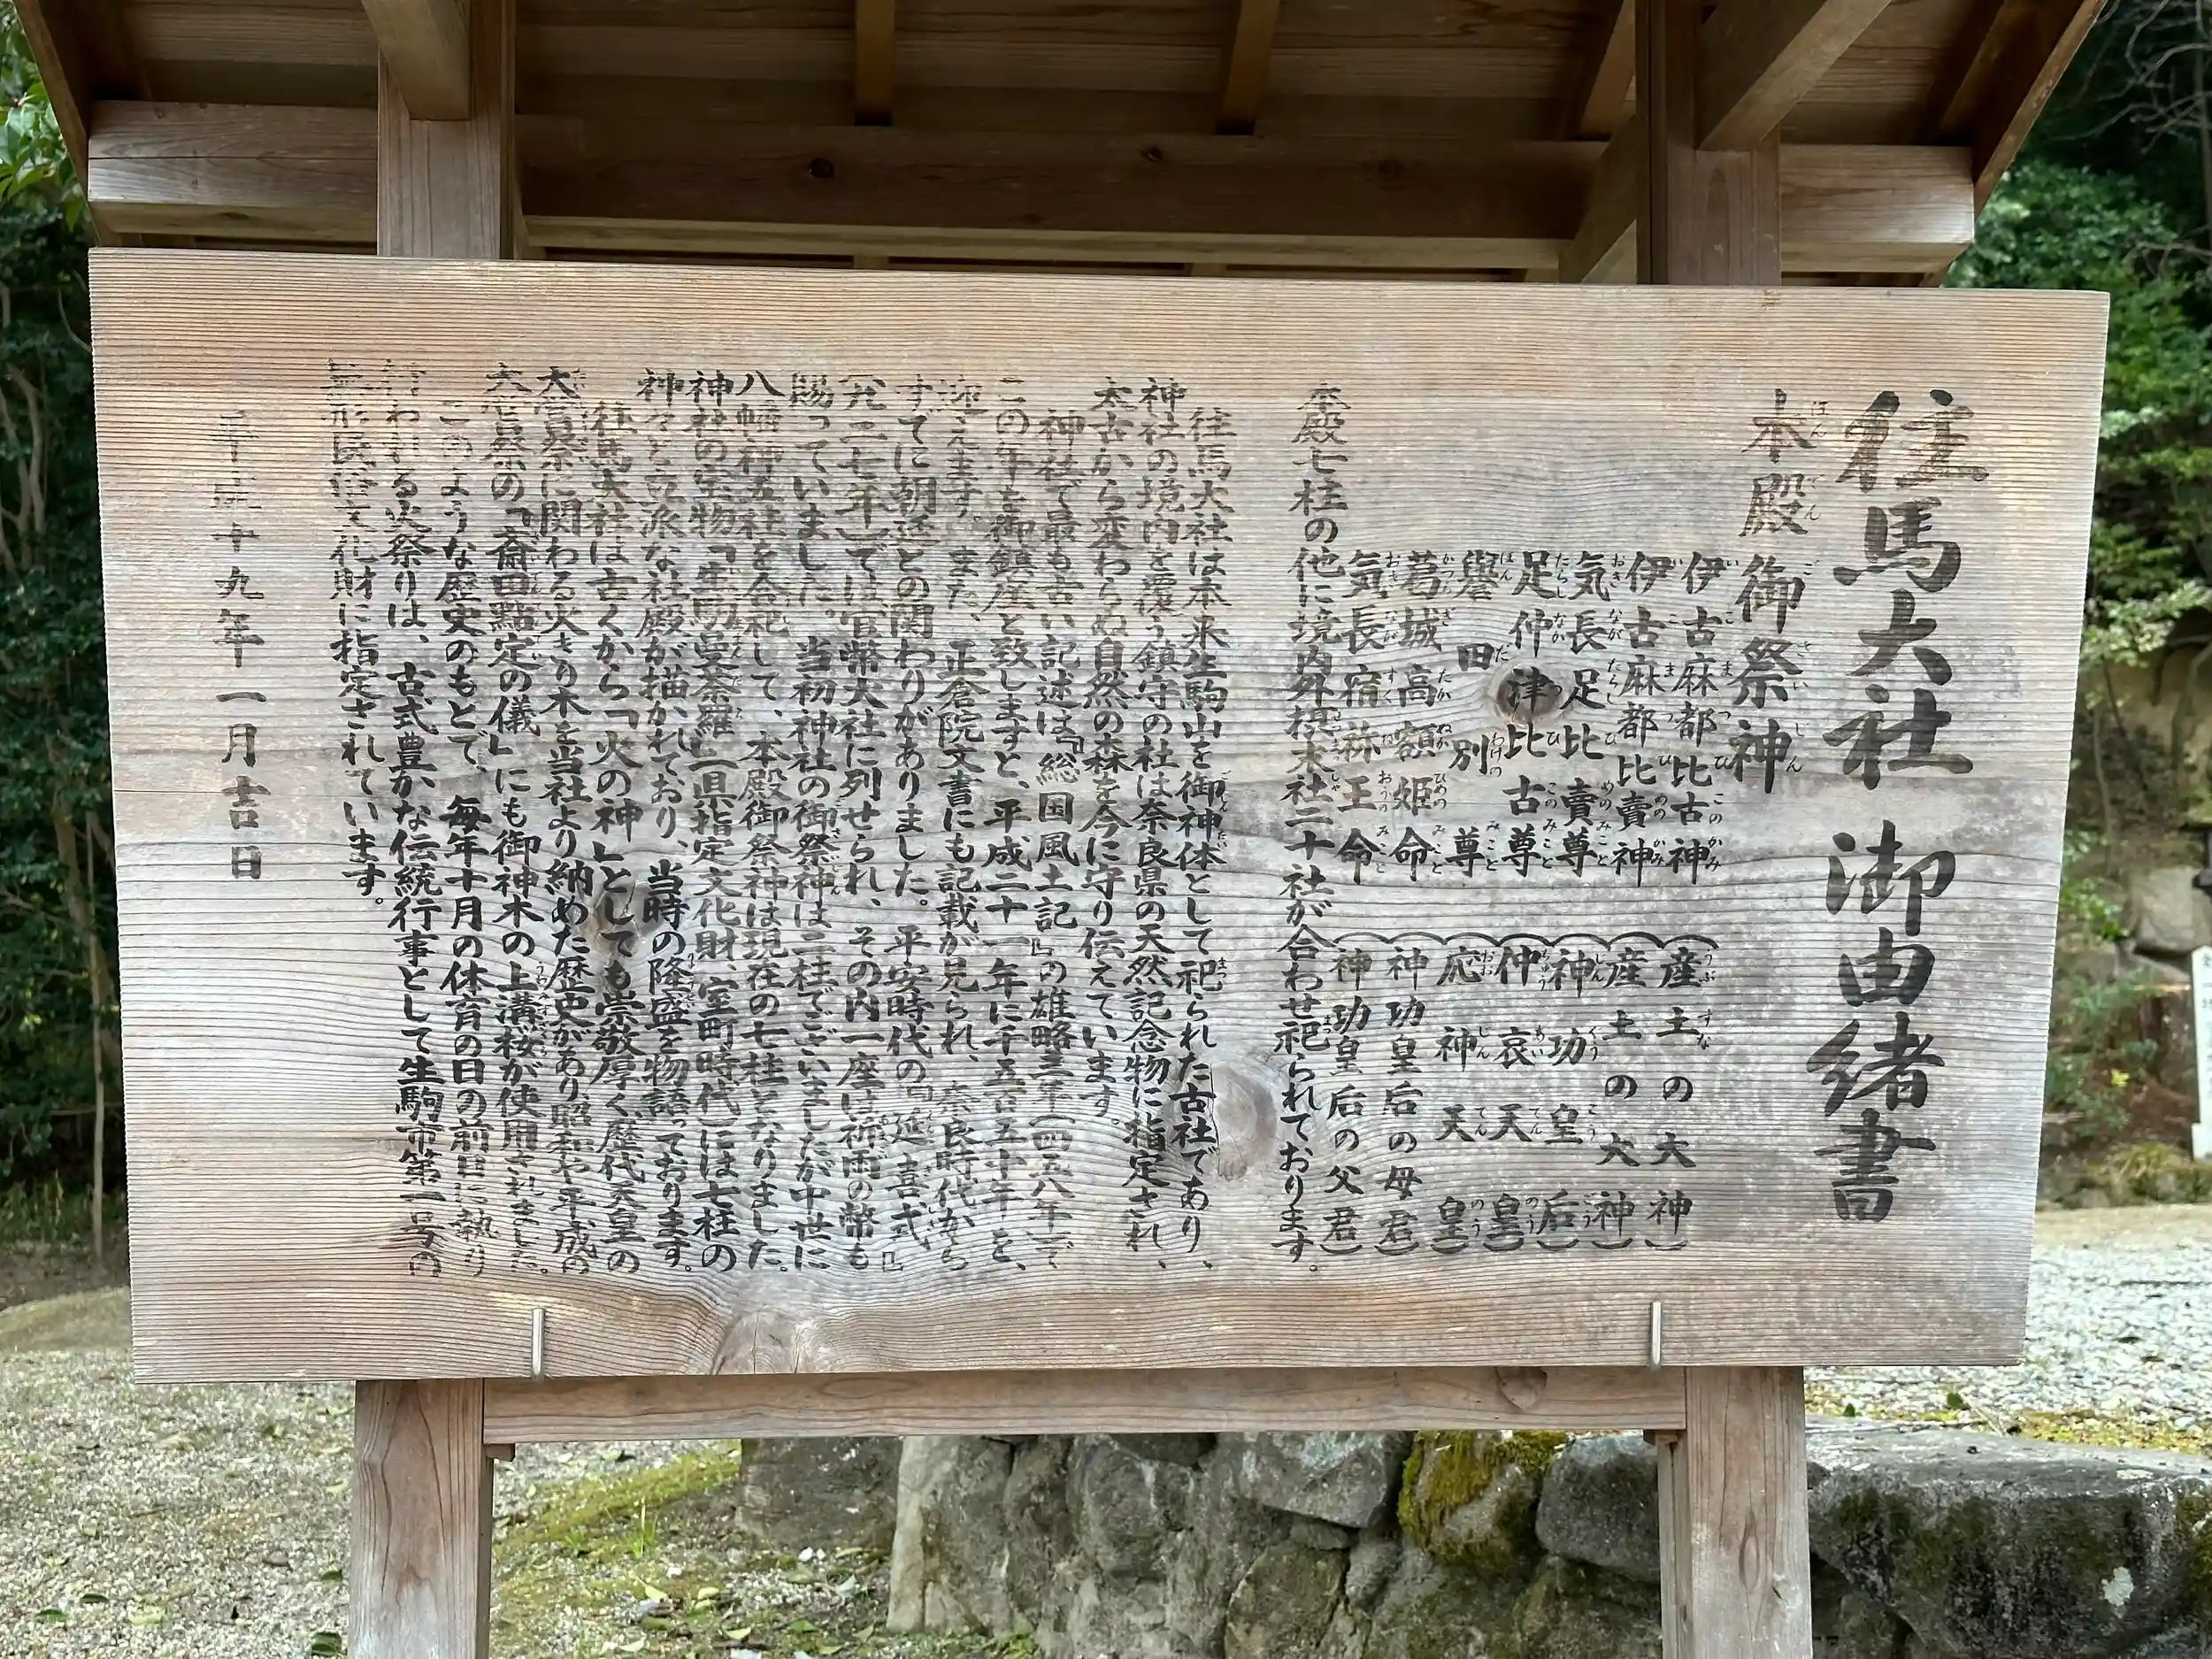 往馬大社 御由緒書
本殿 御祭神
伊古麻都比古神 (産土の大神)
伊古麻都比賣神 (産土の大神)
気長足比賣尊 (神功皇后)
足仲津比古尊 (仲哀天皇)
譽田別尊 (応神天皇)
葛城高額姫命 (神功皇后の母君)
気長宿祢王命 (神功皇后の父君)
本殿七柱の他に境内外摂末社二十社が合わせ祀られております。
往馬大社は本来生駒山を御神体として祀られた古社であり、
神社の境内を覆う鎮守の杜は奈良県の天然記念物に指定され、
太古から変わらぬ自然の森を今に守り伝えています。
神社で最も古い記述は『総国風土記』の雄略三年(四五八年)で
この年を御鎮座と致しますと、平成二十一年に千五百五十年を、
迎えます。また、正倉院文書にも記載が見られ、奈良時代から
すでに朝廷との関わりがありました。平安時代の『延喜式』
(九二七年)では官幣大社に列せられ、その内一座は祈雨の幣も
賜っていました。当初神社の御祭神は二柱でございましたが中世に
八幡神五柱を合祀して、本殿御祭神は現在の七柱となりました。
神社の宝物「生駒曼荼羅」(県指定文化財、室町時代)には七柱の
神々と立派な社殿が描かれており、当時の隆盛を物語っております。
往馬大社は古くから「火の神」としても崇敬厚く、歴代天皇の
大嘗祭に関わる火きり木を当社より納めた歴史があり、昭和や平成の
大嘗祭の「斎田點定の儀」にも御神木の上溝桜が使用されました。
このような歴史のもとで、毎年十月の体育の日の前日に執り
行われる火祭りは、古式豊かな伝統行事として生駒市第一号の
無形民俗文化財に指定されています。
平成十九年一月吉日